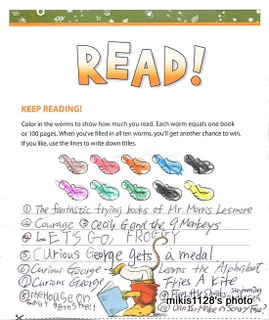 READ!
KEEP READING!
Color in the worms to show how much you read. Each worm equals one book
or 100 pages. When you've filled in all ten worms, you'll get another chance to win.
If you like, use the lines to write down titles.
① The fantastic flying books of Mr. Morris Lesmore
② Courage ③ Cecily G and the 9 Monkeys
④ LETS GO, FROGGY
⑤ Curious George gets a medal
⑥ Curious George Learns the Alphabet
⑦ Curious George Flies A Kite
⑧ The House on
mikis1128's photo